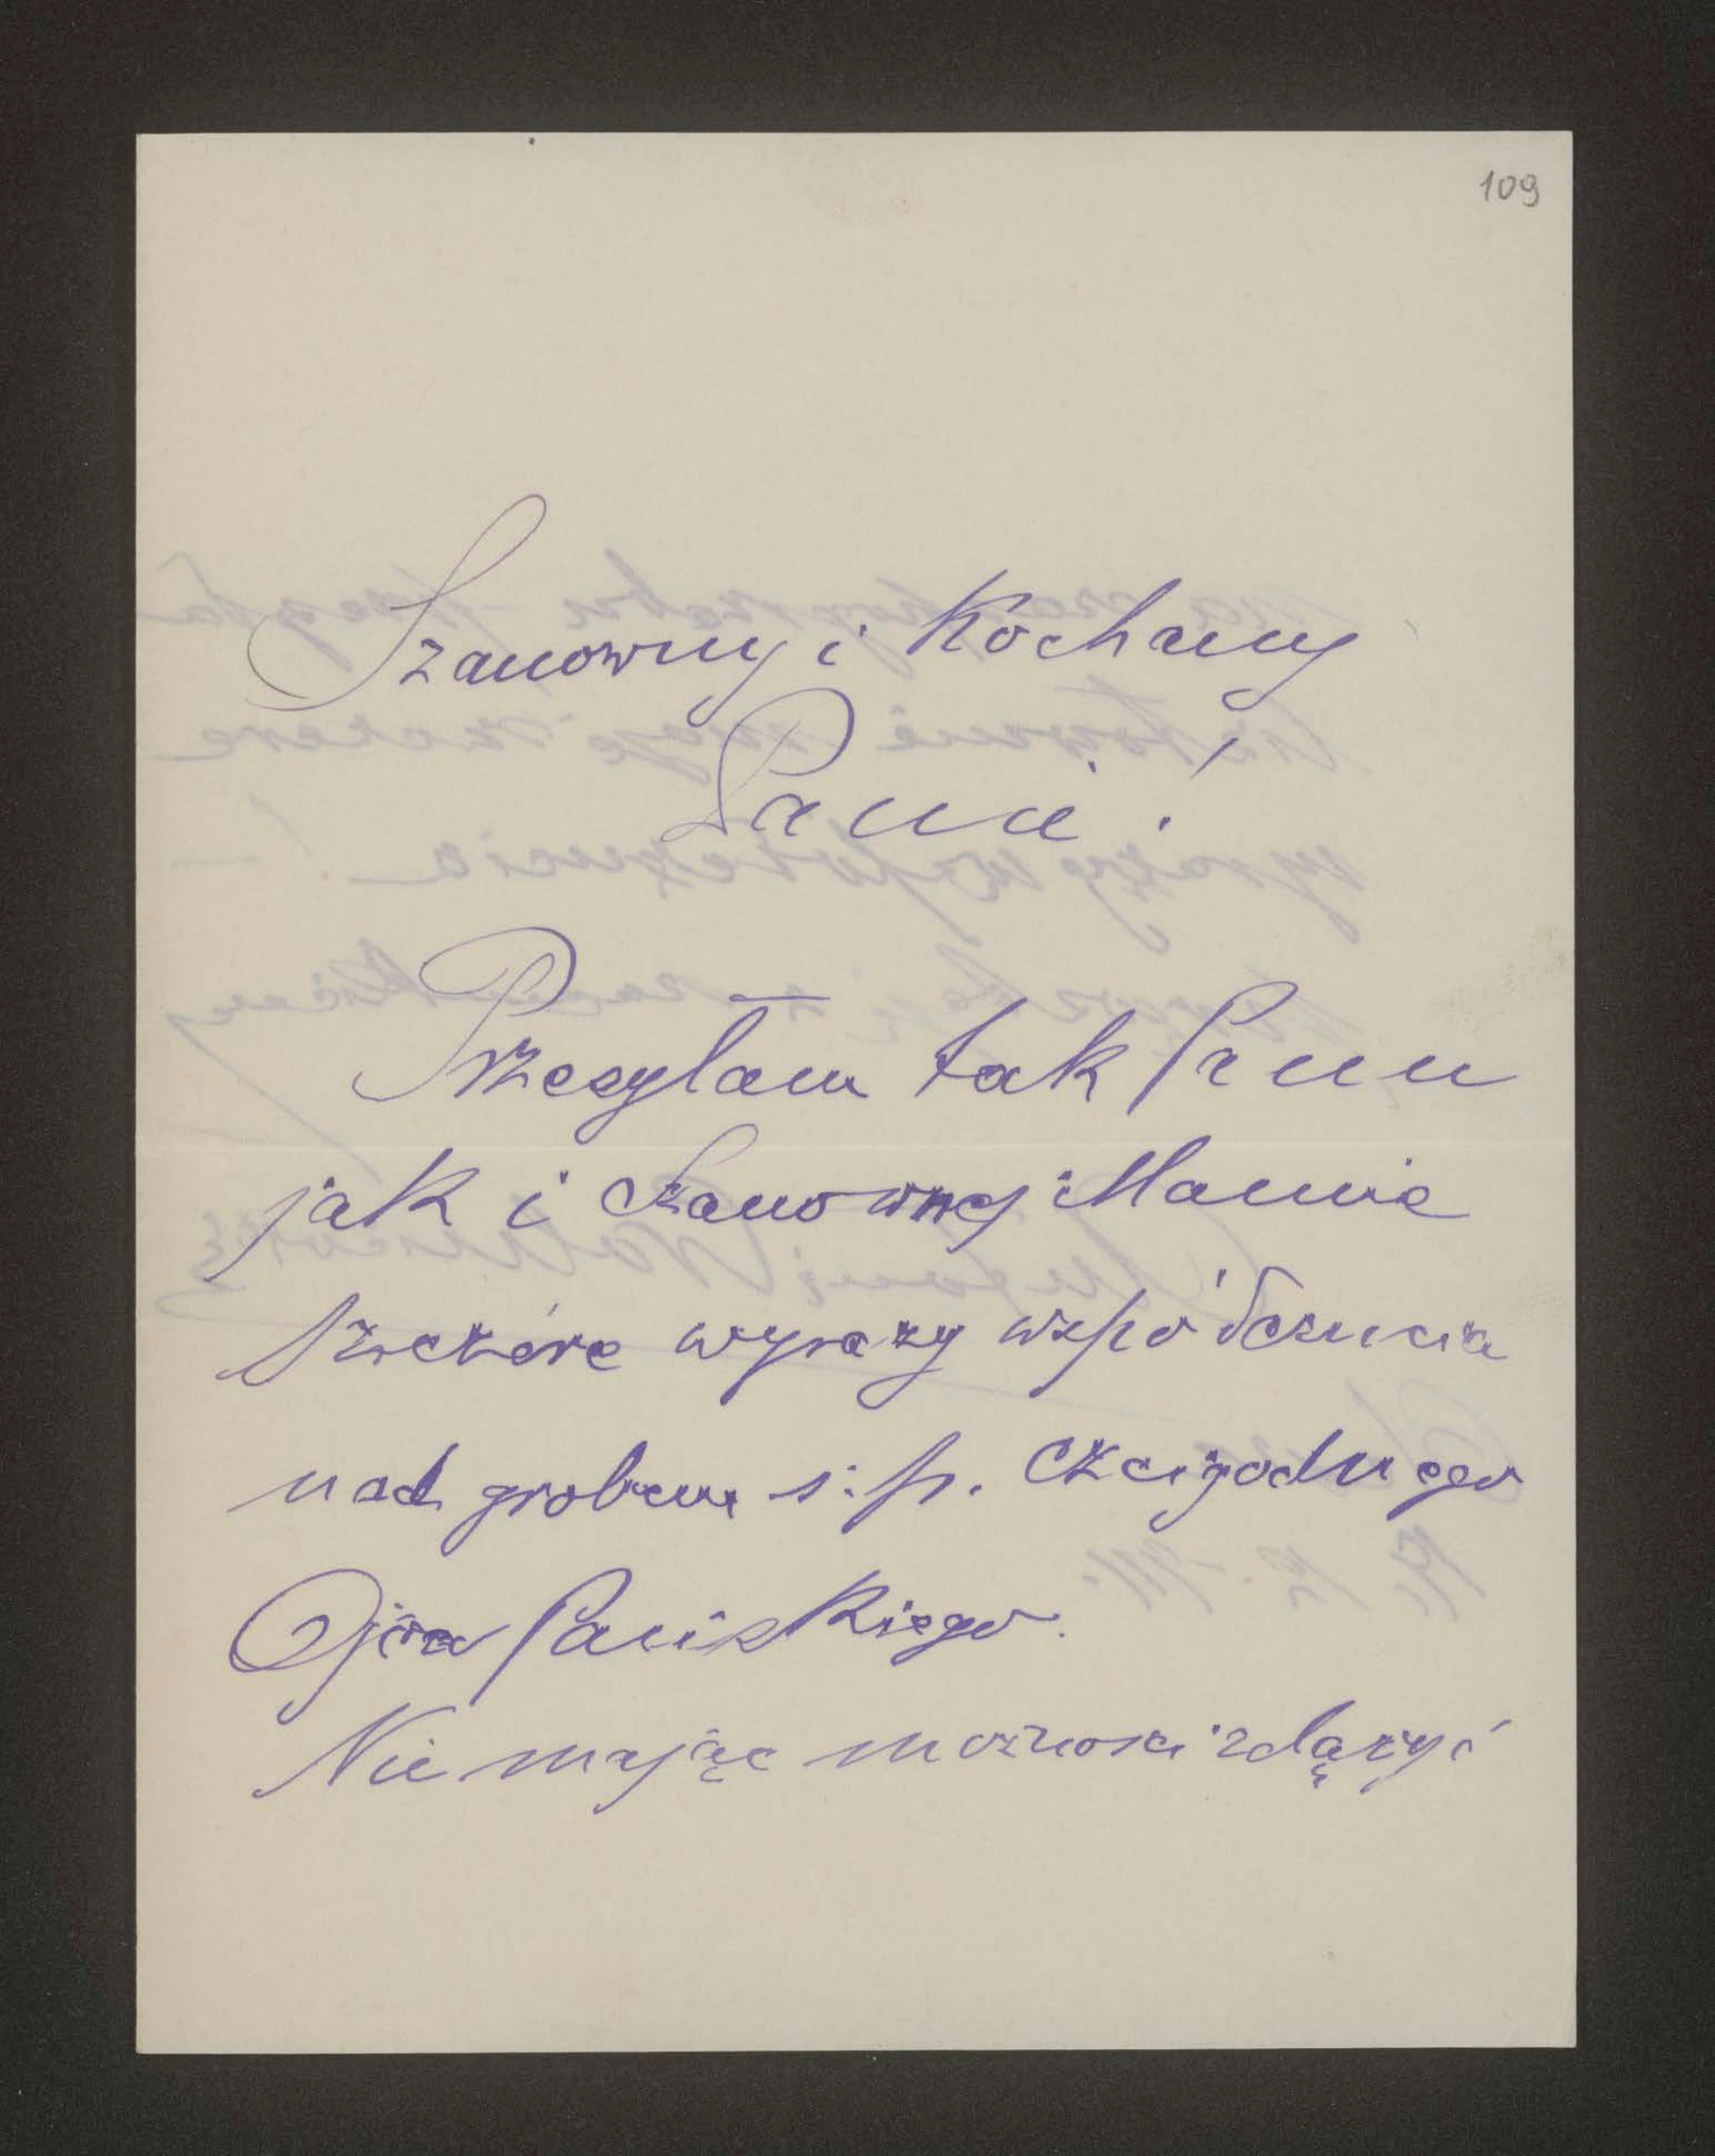 109
Szanowny i Kochany
Panie!
Przesyłam tak Panu
jak i Szanownej Mamie
szczére wyrazy współczucia
nad grobem ś. p. czcigodnego
Ojca Pańskiego.
Nie mając możności zdążyć